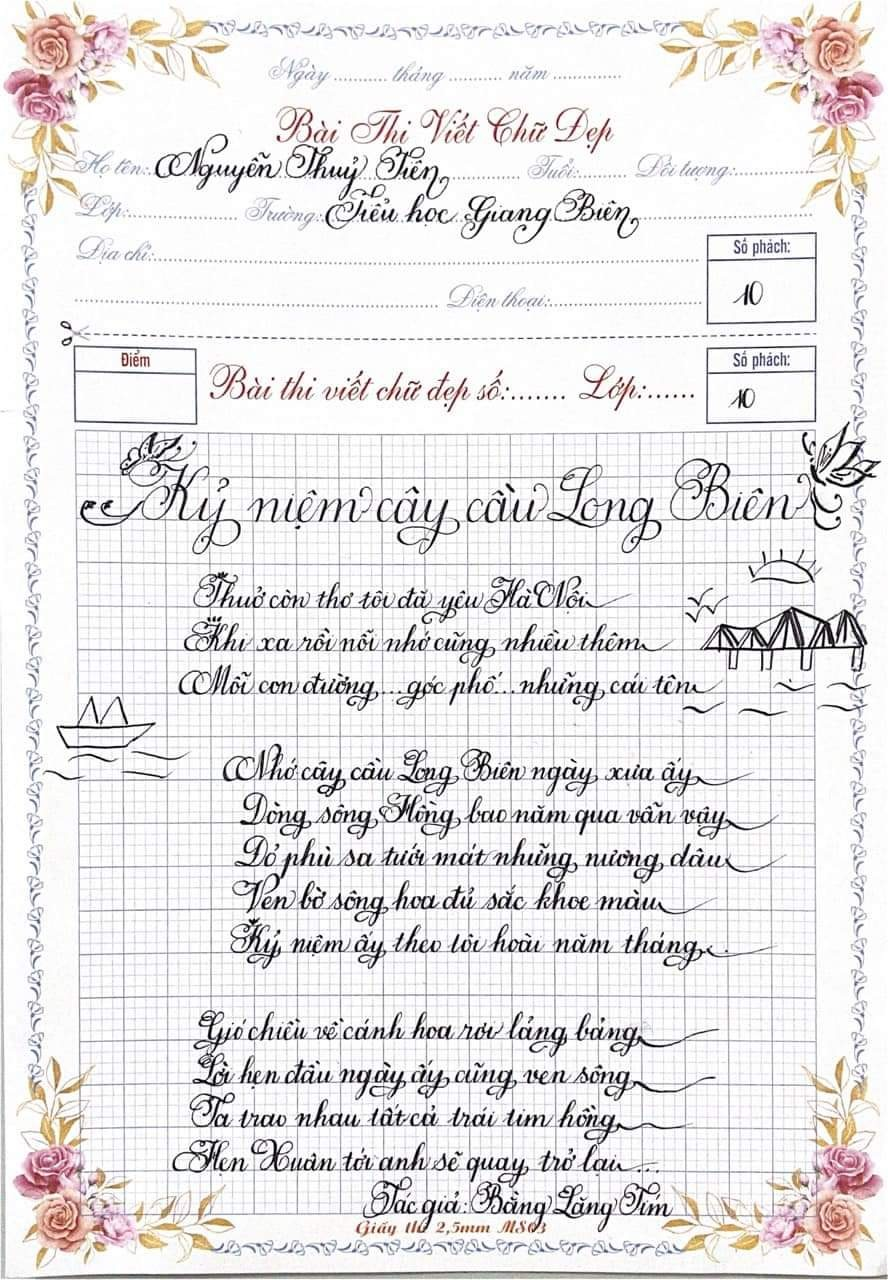 Ngày .......... tháng .......... năm .............
Bài Thi Viết Chữ Đẹp
Họ tên: Nguyễn Thuỷ Tiên Tuổi:......... Đối tượng:...............
Lớp:..................... Trường: Tiểu học Giang Biên
Địa chỉ:
Số phách:
10
Điện thoại:
Điểm
Bài thi viết chữ đẹp số:....... Lớp:......
Số phách:
10
Kỷ niệm cây cầu Long Biên
Thuở còn thơ tôi đã yêu Hà Nội
Khi xa rồi nỗi nhớ cũng nhiều thêm
Mỗi con đường...góc phố...những cái tên
Nhớ cây cầu Long Biên ngày xưa ấy
Dòng sông Hồng bao năm qua vẫn vậy
Đỏ phù sa tưới mát những nương dâu
Ven bờ sông hoa đủ sắc khoe màu
Kỷ niệm ấy theo tôi hoài năm tháng...
Gió chiều về cánh hoa rơi lảng bảng
Lời hẹn đầu ngày ấy cũng ven sông
Ta trao nhau tất cả trái tim hồng
Hẹn Xuân tới anh sẽ quay trở lại...
Tác giả: Bằng Lăng Tím
Giấy thi 2,5mm MS03